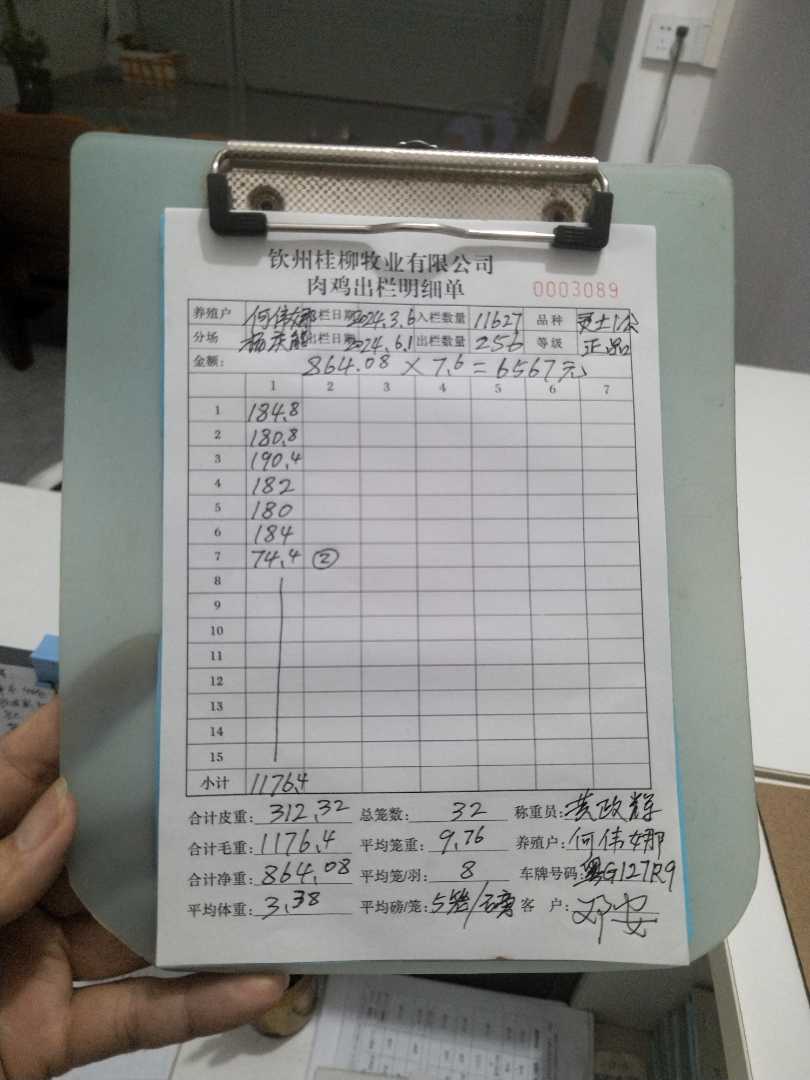 钦州桂柳牧业有限公司
肉鸡出栏明细单
0003089
养殖户 何伟娜 栏日期 2024.3.6 入栏数量 11627 品种
分场 出栏日期 2024.6.1 出栏数量 256 等级 正品
金额: 864.08 × 7.6 = 6567元
1 2 3 4 5 6 7
1 184.8
2 180.8
3 190.4
4 182
5 180
6 184
7 74.4 ②
8
9
10
11
12
13
14
15
小计 1176.4
合计皮重: 312.32 总笼数: 32 称重员: 黄政辉
合计毛重: 1176.4 平均笼重: 9.76 养殖户: 何伟娜
合计净重: 864.08 平均笼/羽: 8 车牌号码: 粤G127R9
平均体重: 3.38 平均磅/笼: 5笼/磅 客 户: